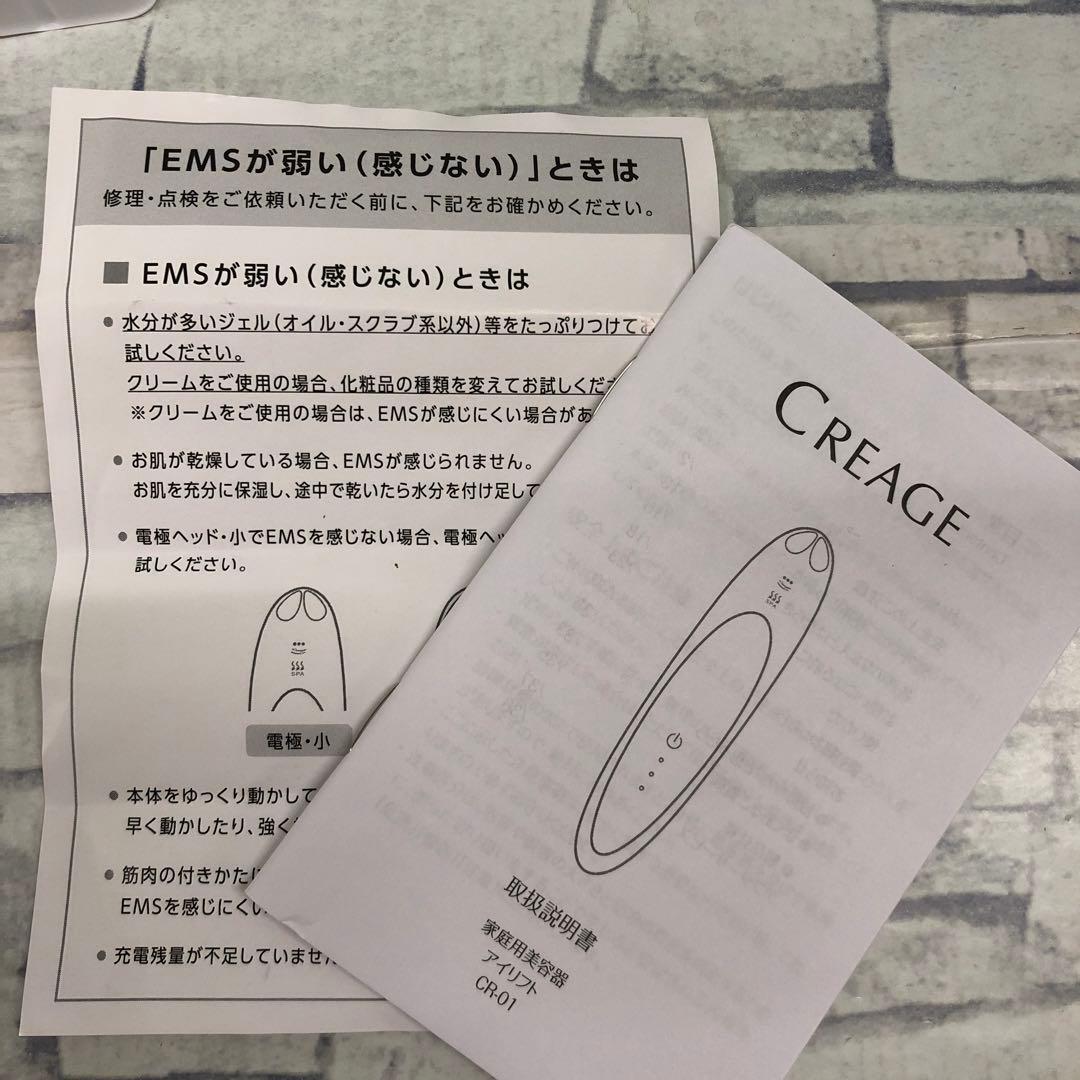 「EMSが弱い（感じない）」ときは
修理・点検をご依頼いただく前に、下記をお確かめください。
■ EMSが弱い（感じない）ときは
● 水分が多いジェル（オイル・スクラブ系以外）等をたっぷりつけてお
試しください。
クリームをご使用の場合、化粧品の種類を変えてお試しくだ
※クリームをご使用の場合は、EMSが感じにくい場合があ
● お肌が乾燥している場合、EMSが感じられません。
お肌を充分に保湿し、途中で乾いたら水分を付け足して
● 電極ヘッド・小でEMSを感じない場合、電極ヘッ
試しください。
SPA
電極・小
● 本体をゆっくり動かして
早く動かしたり、強く
● 筋肉の付きかたに
EMSを感じにくい
● 充電残量が不足していませ
CREAGE
SPA
取扱説明書
家庭用美容器
アイリフト
CR-01